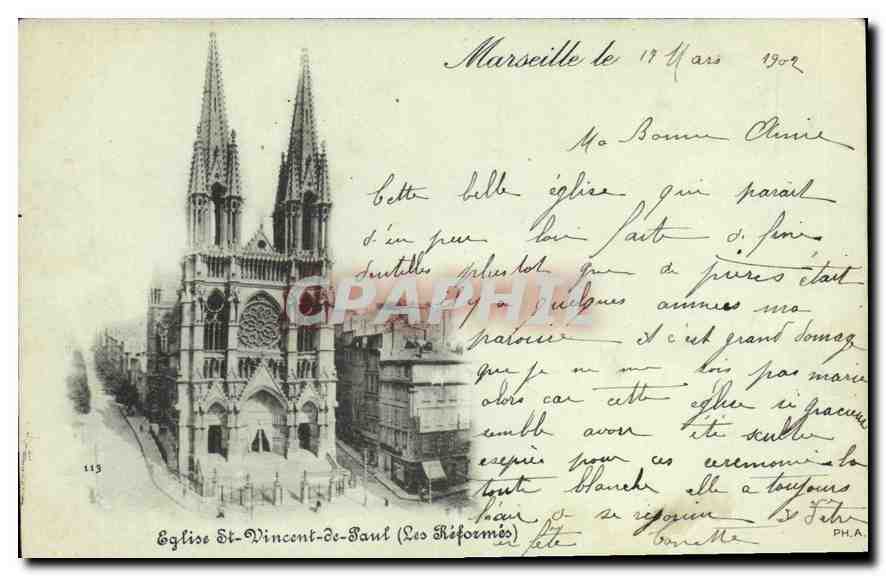 Marseille le 19 Mars 1902
Ma Bonne Aimée
Cette belle église qui parait
d'un peu loin faite de fine
dentelles plustot que de pierres était
il y a quelques années ma
paroisse il c'est grand domage
que je ne me sois pas marie
alors car cette eglise si gracieuse
semble avoir été sculter
pour ces ceremonie la
toute blanche elle a toujours
l'air de se rejouir d'etre
en fête
CPAPHIL
113
Eglise St-Vincent-de-Paul (Les Réformés)
PH.A.